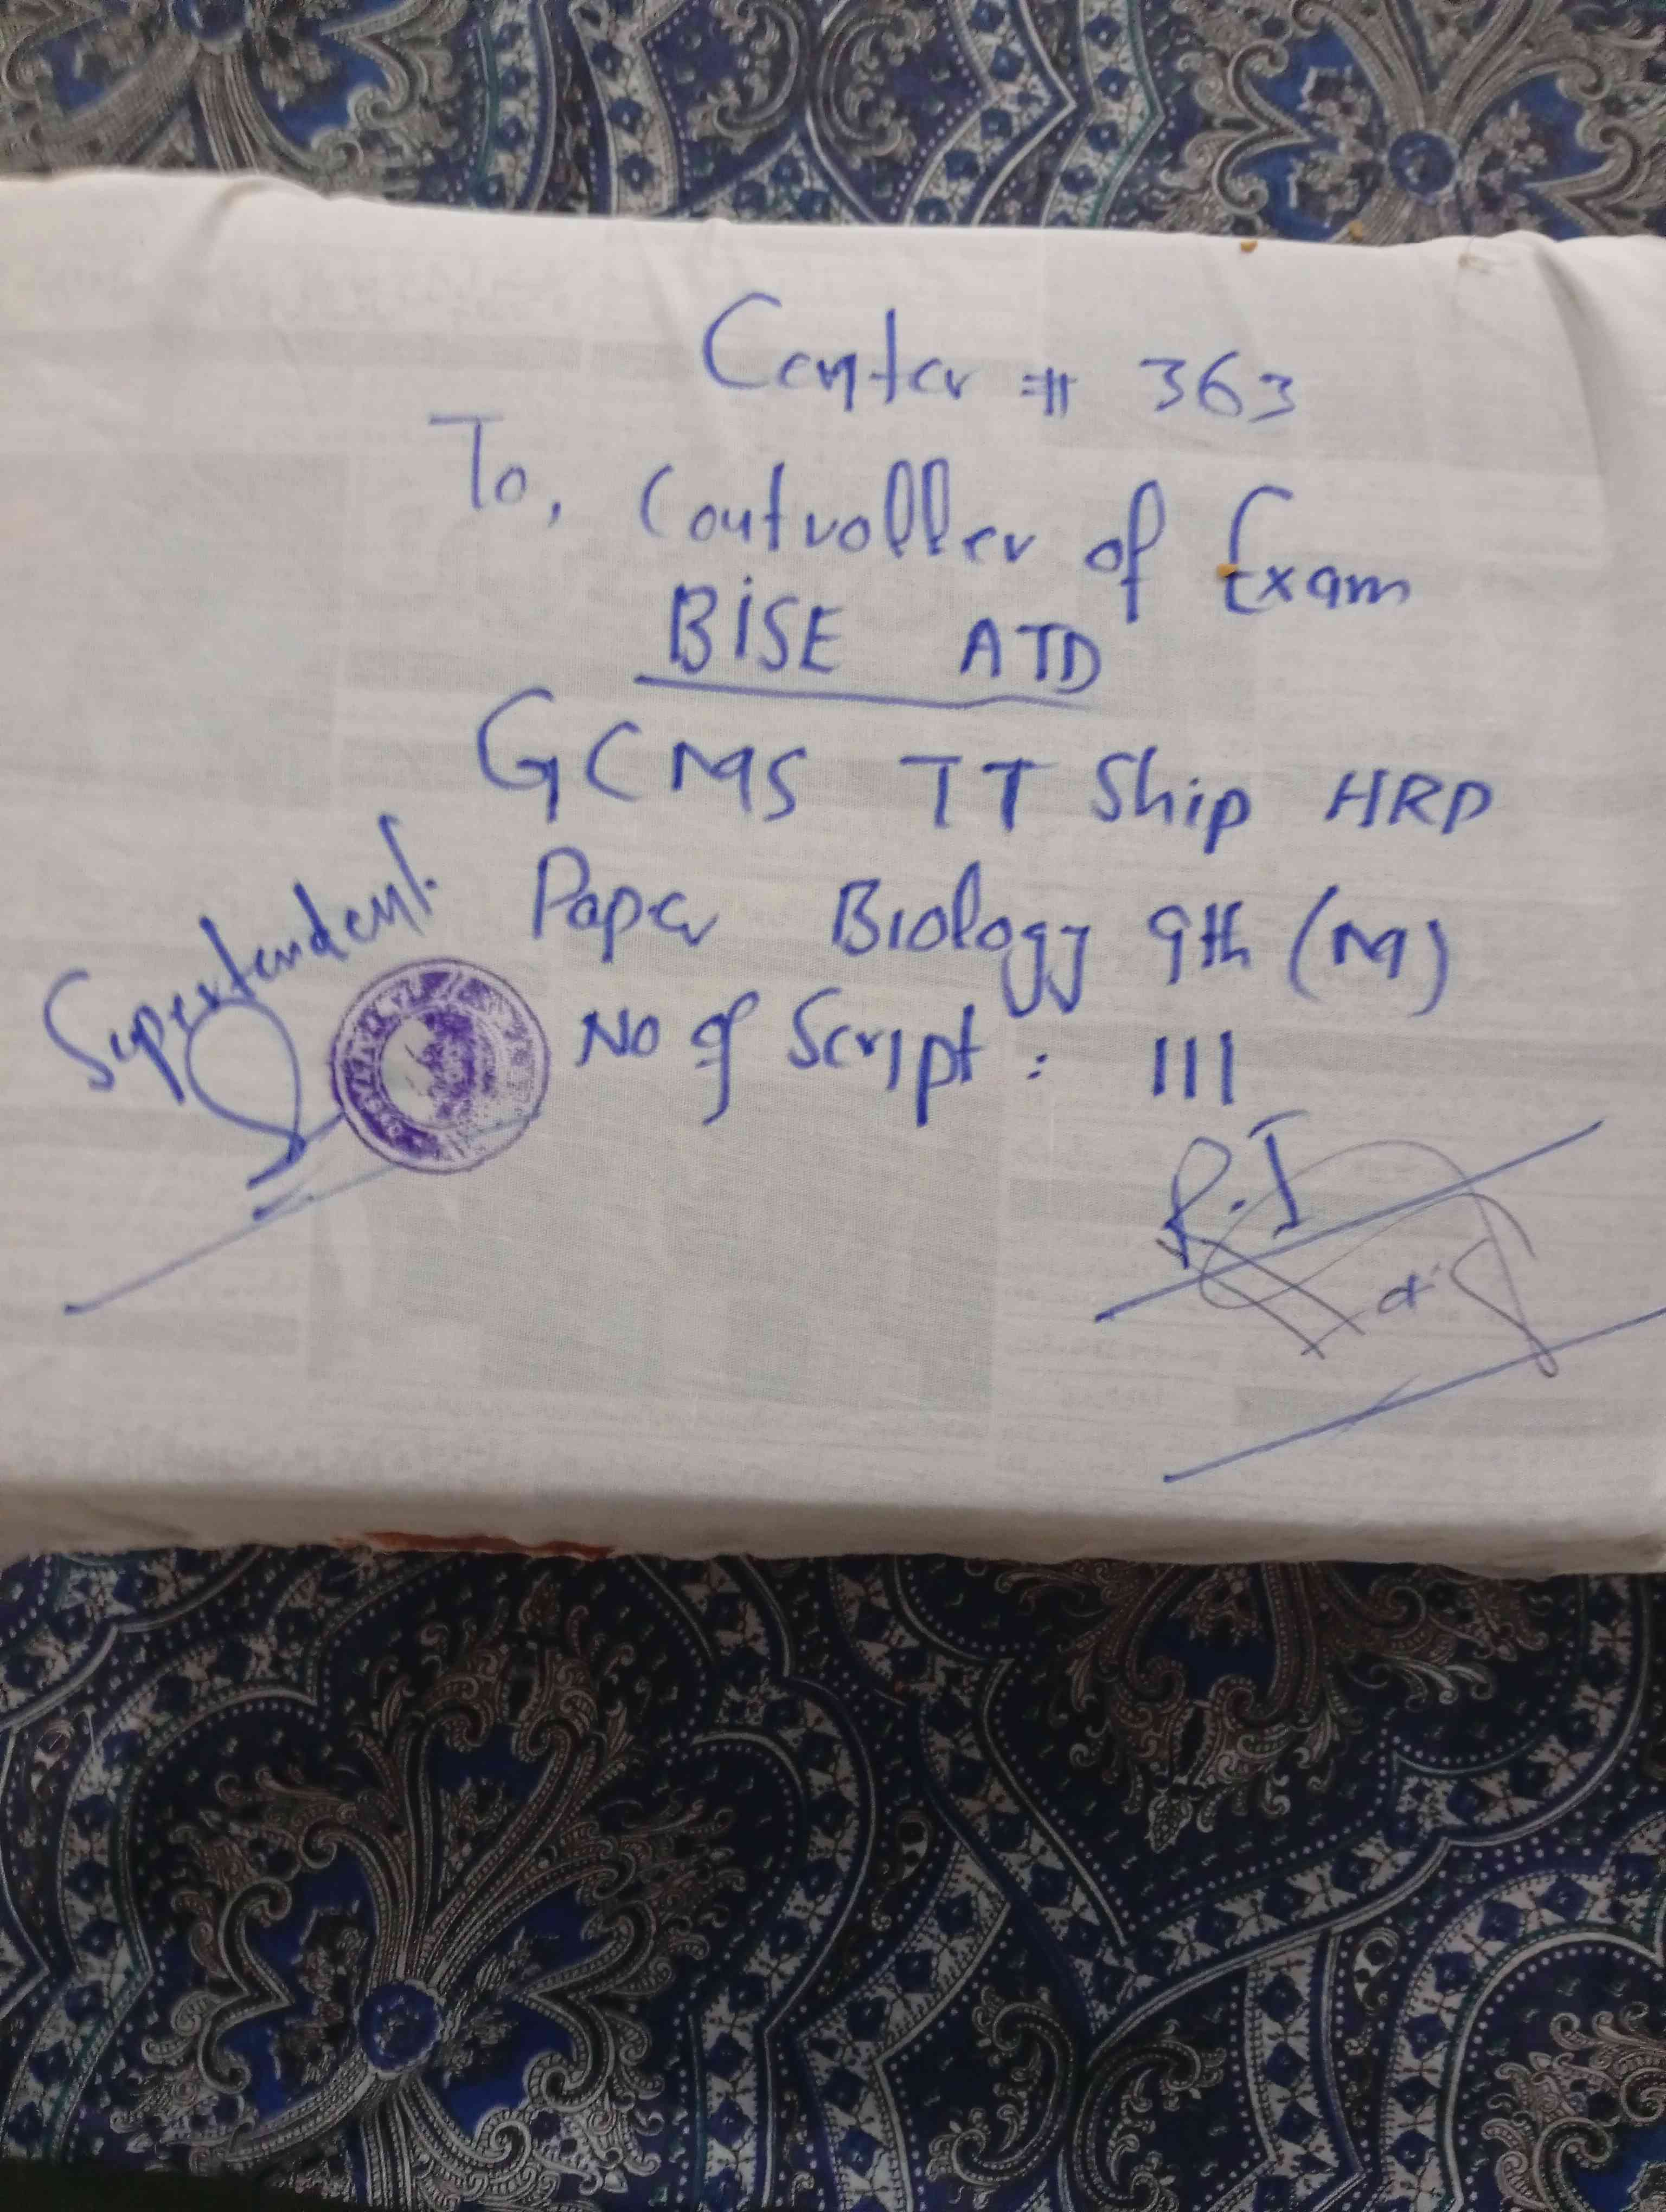 Center # 363
To, Controller of Exam
BISE ATD
GCMS TT Ship HRP
Paper Biology 9th (M)
No of Script : 111
Supertendent.
R.I